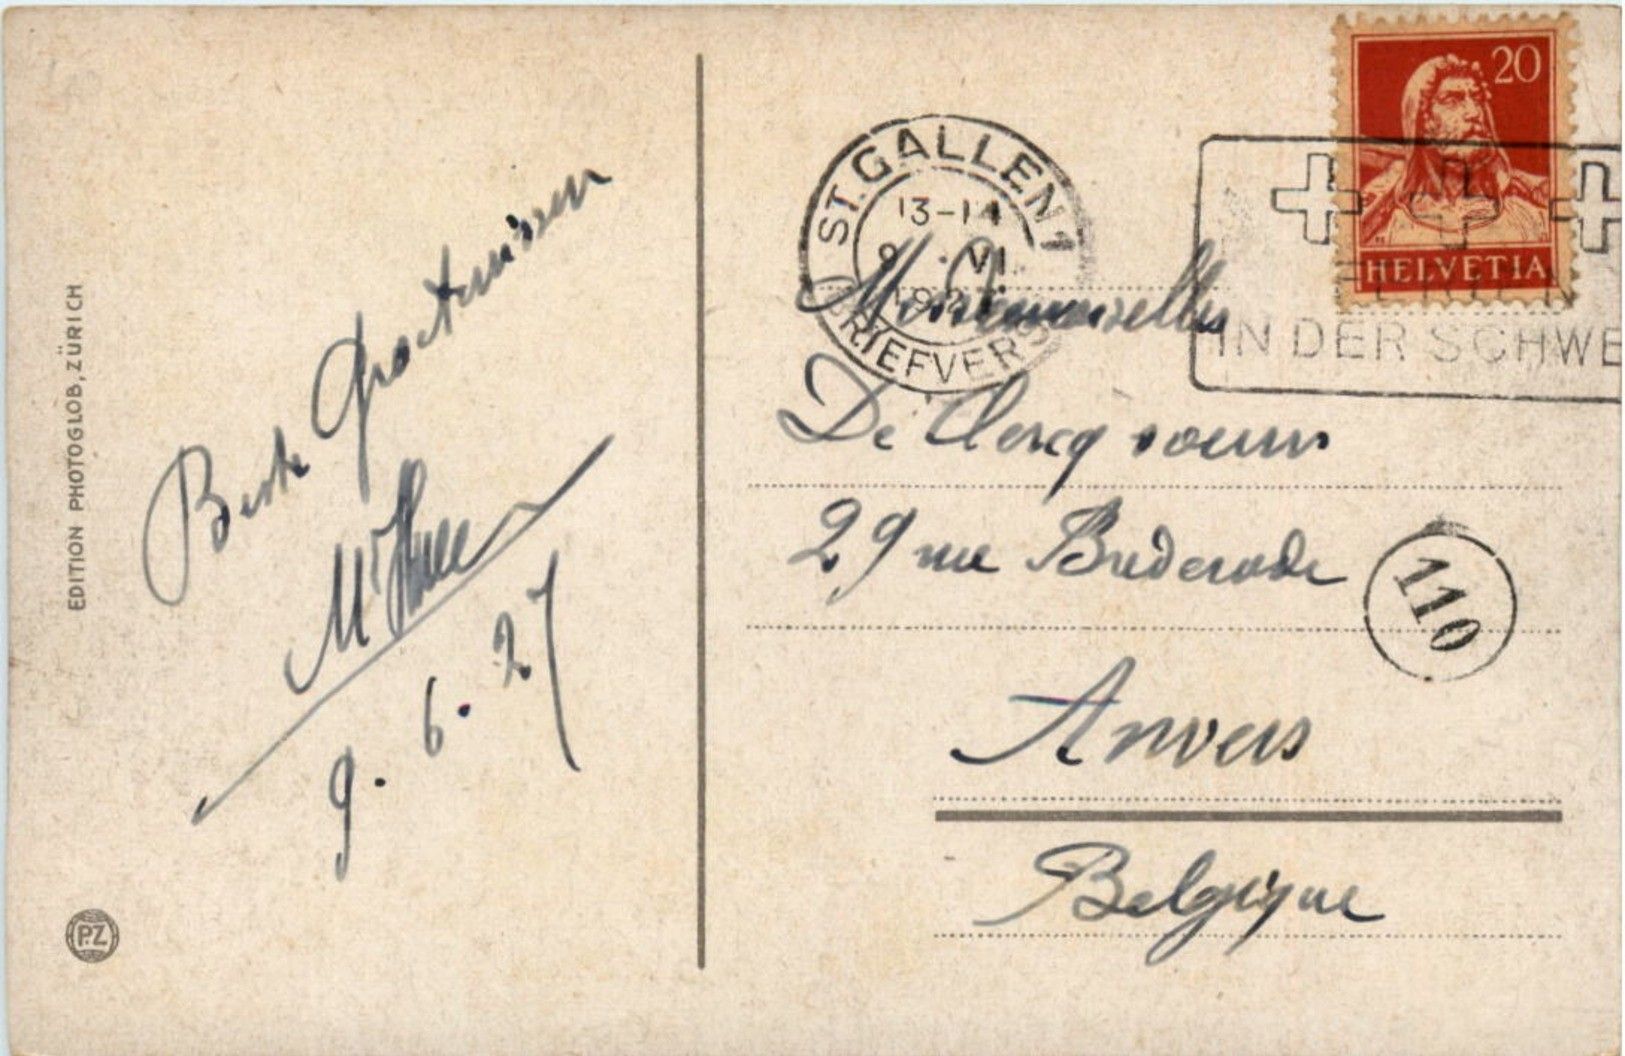 EDITION PHOTOGLOB, ZÜRICH
Beste Groetenissen
9. 6. 27
P.Z
20
HELVETIA
ST. GALLEN 1
13-14
9. VI.
1927
BRIEFVERS
FERIEN
IN DER SCHWE
Mesdemoiselles
De Clercq soeurs
29 rue Brederode
110
Anvers
Belgique